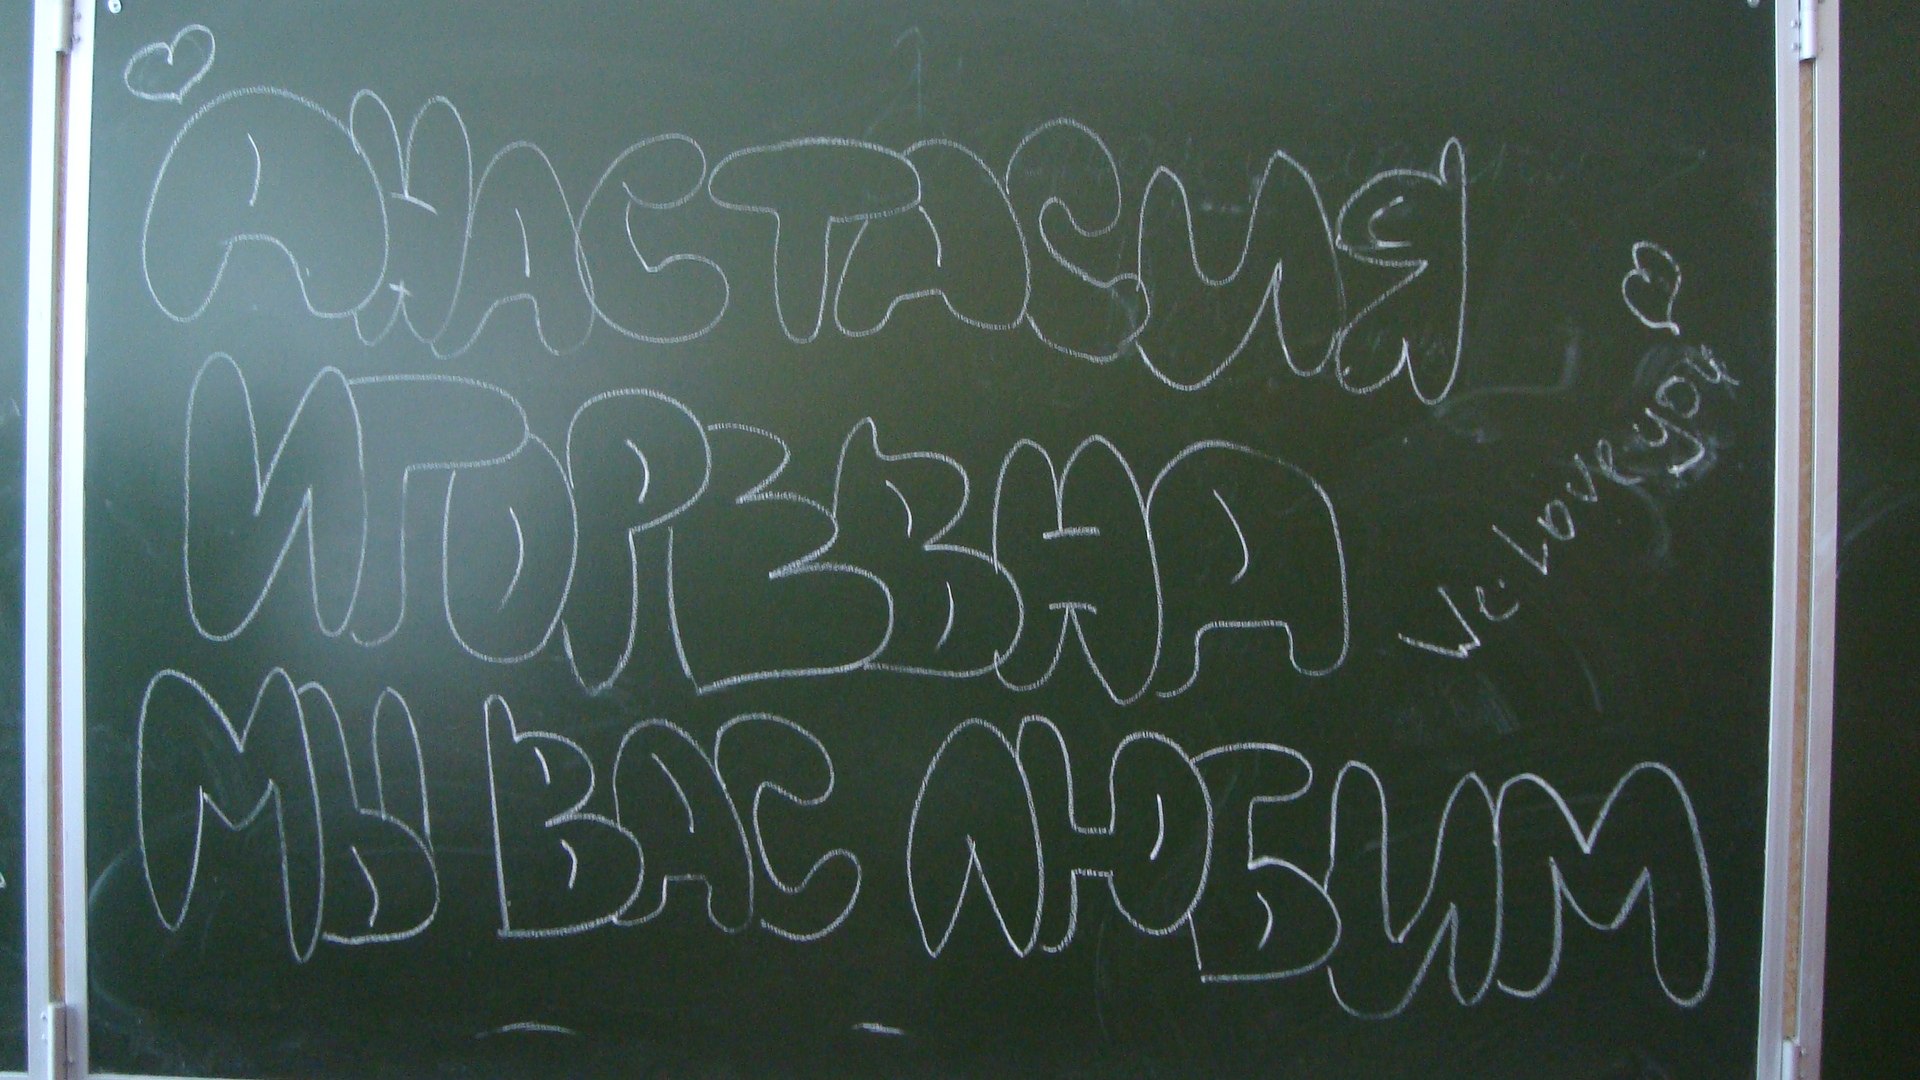 АНАСТАСИЯ
ИГОРЕВНА
МЫ ВАС ЛЮБИМ
We Love you